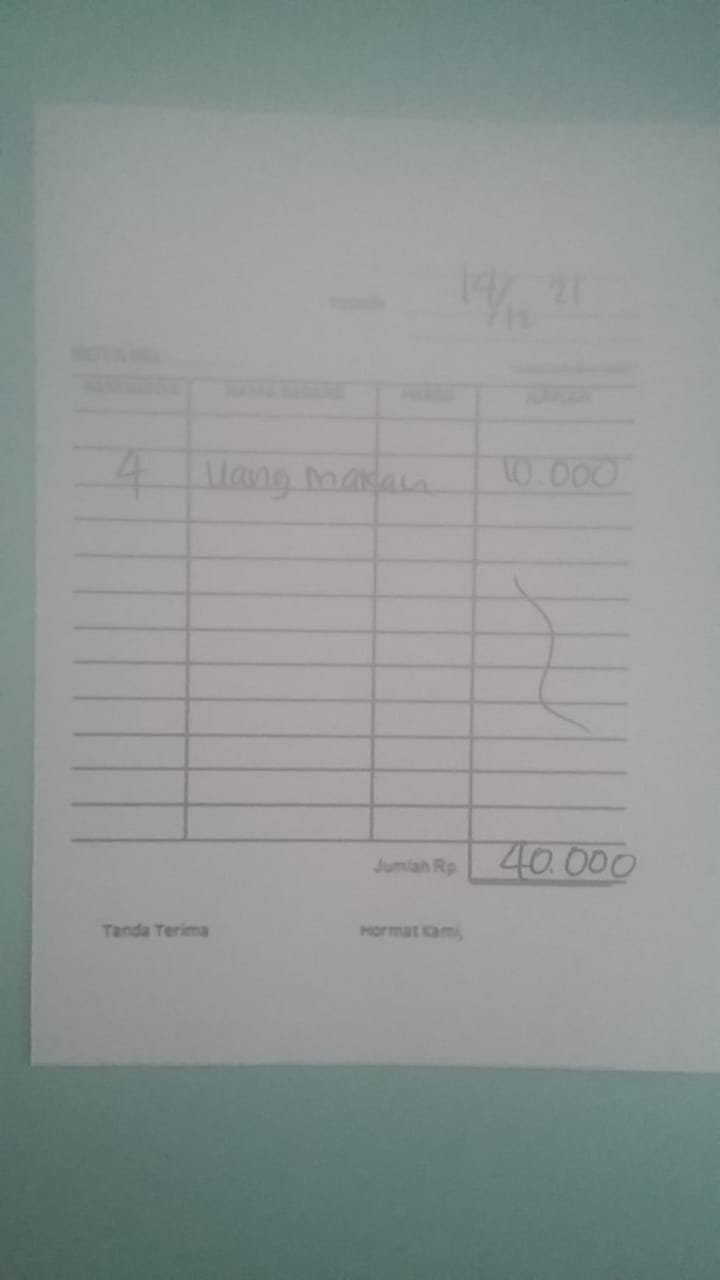 14/12 21
Kepada
NOTA NO.
BANYAKNYA NAMA BARANG HARGA JUMLAH
4 Uang makan 10.000
Jumlah Rp. 40.000
Tanda Terima Hormat Kami,